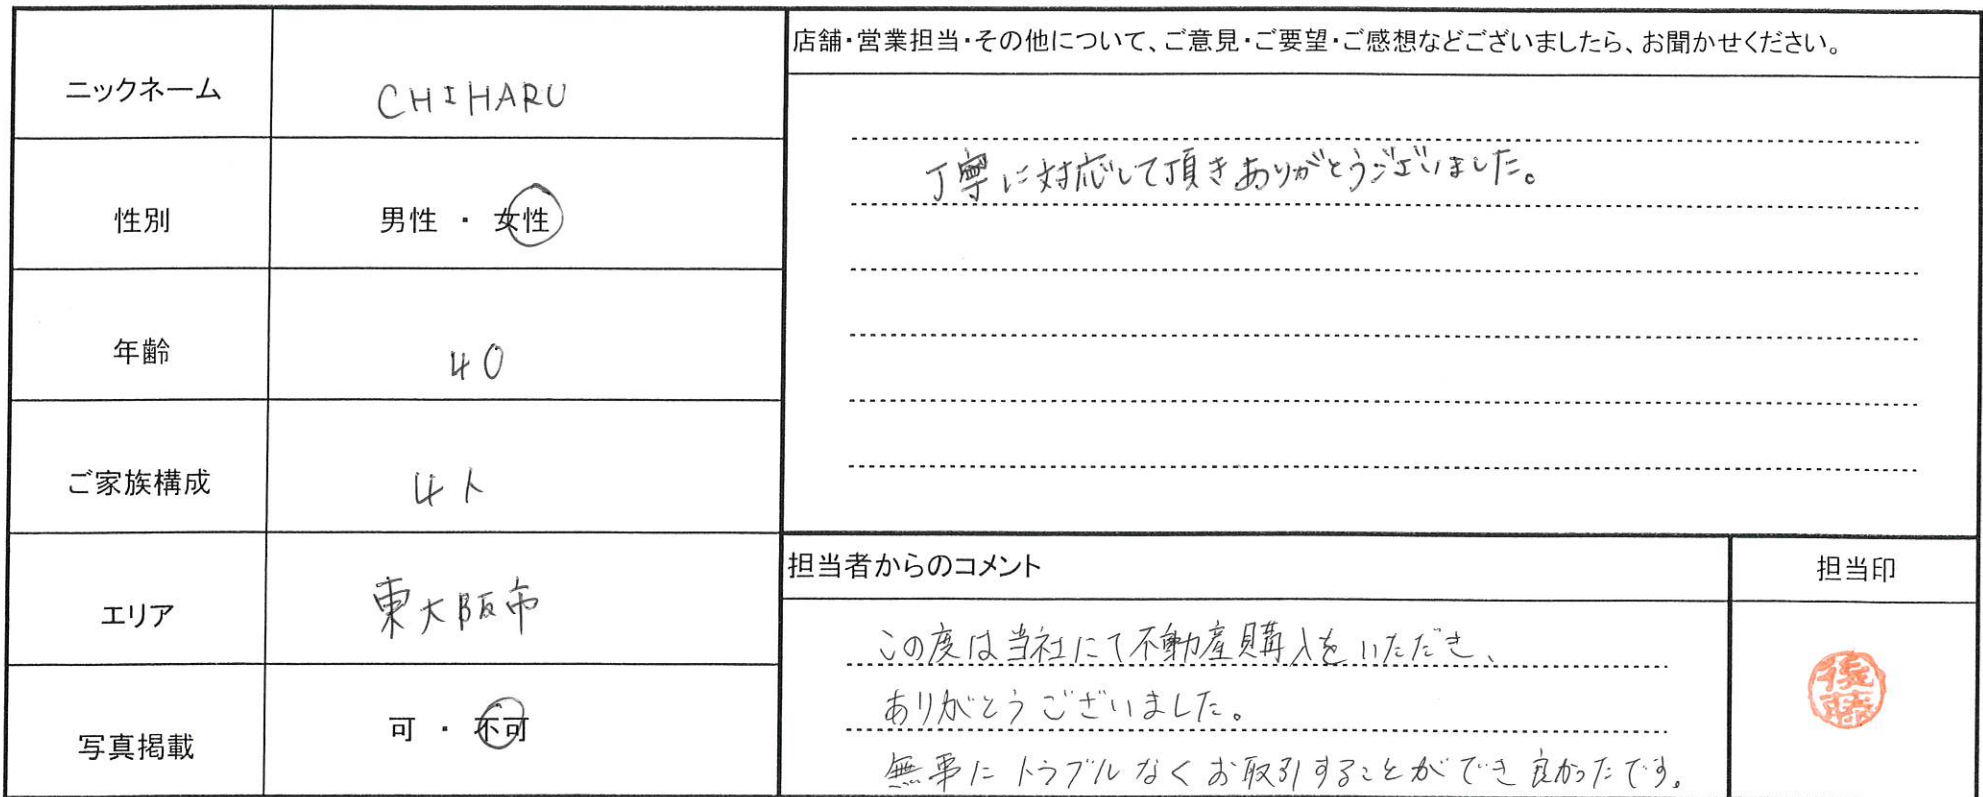 ニックネーム
CHIHARU
性別
男性 ・ 女性
年齢
40
ご家族構成
4人
エリア
東大阪市
写真掲載
可 ・ 不可
店舗・営業担当・その他について、ご意見・ご要望・ご感想などございましたら、お聞かせください。
丁寧に対応して頂きありがとうございました。
担当者からのコメント
この度は当社にて不動産購入をいただき、
ありがとうございました。
無事にトラブルなくお取引することができ良かったです。
担当印
後藤